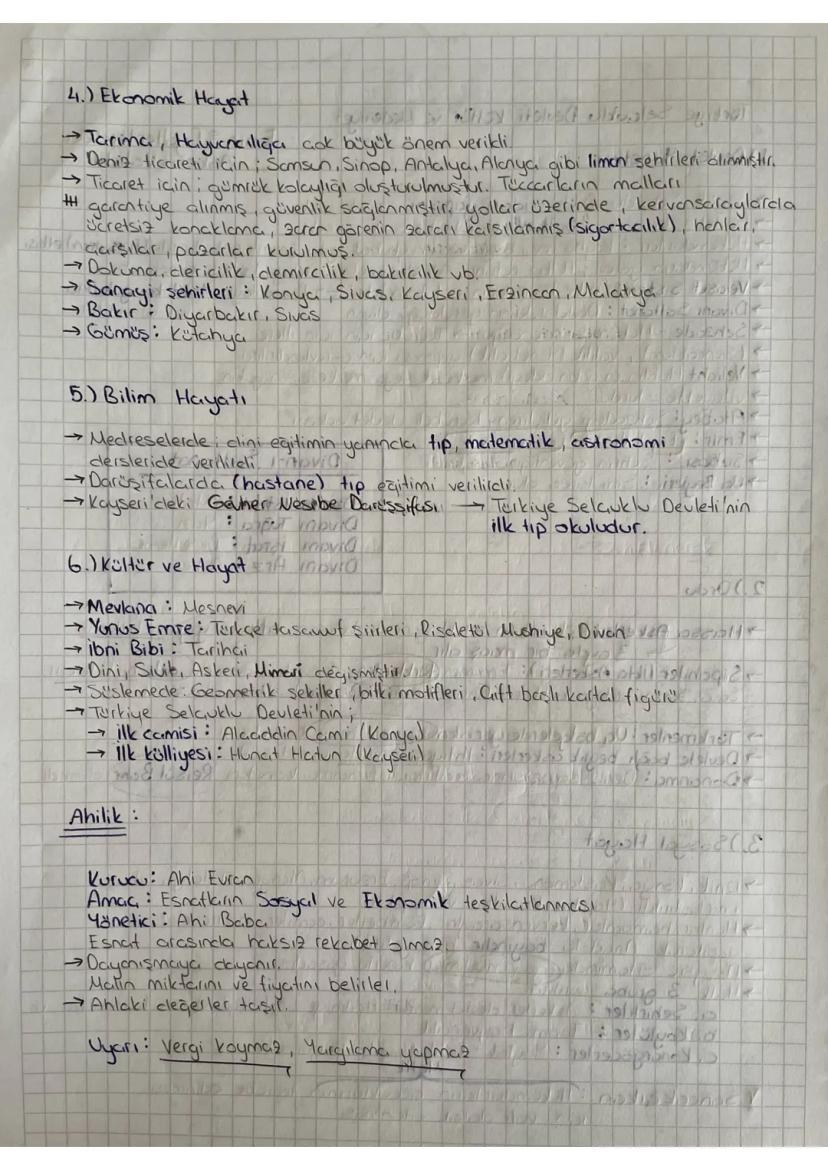 4.) Ekonomik Hayat
→ Tarıma, Hayvancılığa çok büyük önem verildi.
→ Deniz ticareti için; Samsun, Sinop, Antalya, Alanya gibi liman şehirleri alınmıştır.
→ Ticaret için; gümrük kolaylığı oluşturulmuştur. Tüccarların malları
garantiye alınmış, güvenlik sağlanmıştır. yollar üzerinde, kervansaraylarda
ücretsiz konaklama, zarar görenin zararı karşılanmış (sigortacılık), hanlar,
çarşılar, pazarlar kurulmuş.
→ Dokuma, dericilik, demircilik, bakırcılık vb.
→ Sanayi şehirleri: Konya, Sivas, Kayseri, Erzincan, Malatya
→ Bakır: Diyarbakır, Sivas
→ Gümüş: Kütahya
5.) Bilim Hayatı
→ Medreselerde; dini eğitimin yanında tıp, matematik, astronomi
dersleride verilirdi.
→ Darüşifalarda (hastane) tıp eğitimi verilirdi.
→ Kayseri'deki Gevher Nesibe Darüşşifası → Türkiye Selçuklu Devleti'nin
ilk tıp okuludur.
6.) Kültür ve Hayat
→ Mevlana: Mesnevi
→ Yunus Emre: Türkçe tasavvuf şiirleri, Risaletül Nushiye, Divan
→ İbni Bibi: Tarihçi
→ Dini, Sivil, Askeri, Mimari değişmiştir.
→ Süslemede: Geometrik şekiller, bitki motifleri, Çift başlı kartal figürü
→ Türkiye Selçuklu Devleti'nin;
→ ilk camisi: Alaaddin Cami (Konya)
→ ilk külliyesi: Hunat Hatun (Kayseri)
Ahilik:
Kurucu: Ahi Evran
Amaç: Esnafların Sosyal ve Ekonomik teşkilatlanması
Yönetici: Ahi Baba
Esnaf arasında haksız rekabet olmaz.
→ Dayanışmaya dayanır.
Malın miktarını ve fiyatını belirler.
→ Ahlaki değerler taşır.
Uyarı: Vergi koymaz, Yargılama yapmaz